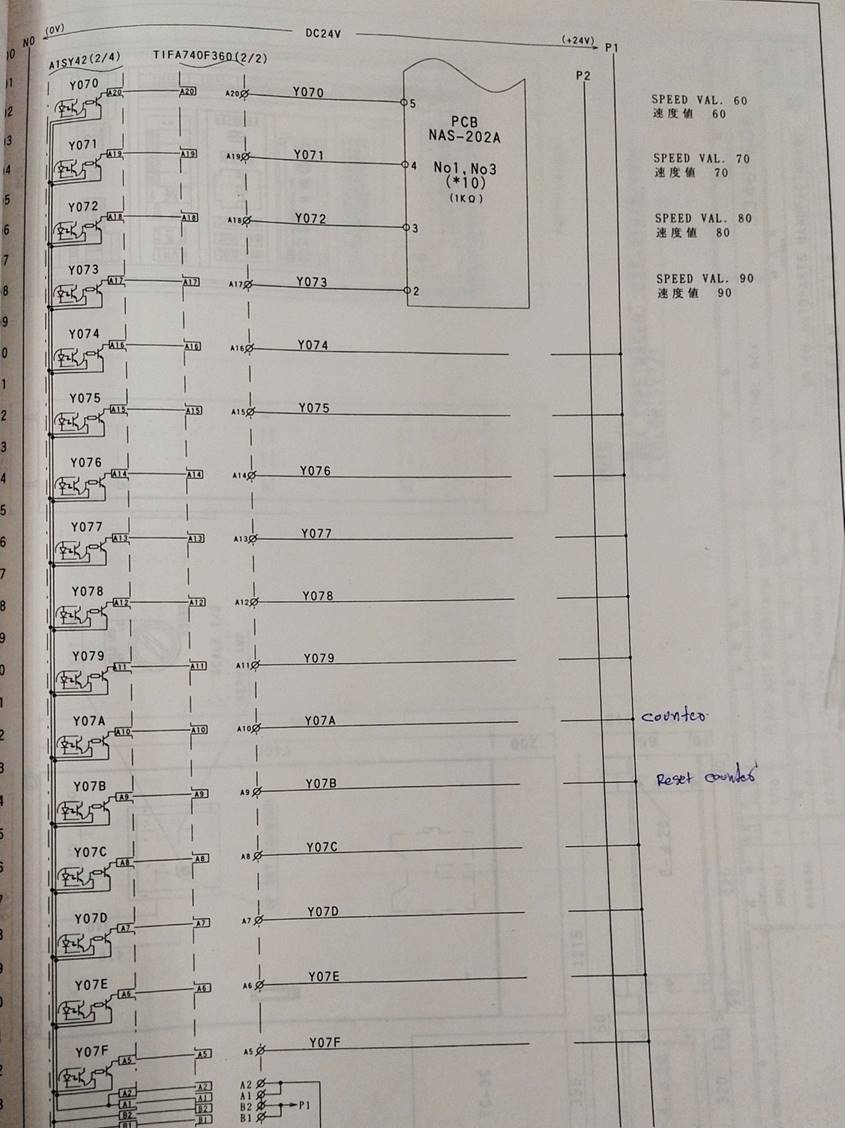 (0V) DC24V (+24V)
N0 P1
A1SY42(2/4) TIFA740F360(2/2) P2
Y070 A20 A20 A20 Y070 5
PCB
NAS-202A
No1, No3
(*10)
(1KΩ)
SPEED VAL. 60
速度値 60
Y071 A19 A19 A19 Y071 4
SPEED VAL. 70
速度値 70
Y072 A18 A18 A18 Y072 3
SPEED VAL. 80
速度値 80
Y073 A17 A17 A17 Y073 2
SPEED VAL. 90
速度値 90
Y074 A16 A16 A16 Y074
Y075 A15 A15 A15 Y075
Y076 A14 A14 A14 Y076
Y077 A13 A13 A13 Y077
Y078 A12 A12 A12 Y078
Y079 A11 A11 A11 Y079
Y07A A10 A10 A10 Y07A counter
Y07B A9 A9 A9 Y07B Reset counter
Y07C A8 A8 A8 Y07C
Y07D A7 A7 A7 Y07D
Y07E A6 A6 A6 Y07E
Y07F A5 A5 A5 Y07F
A2 A2 A2
A1 A1 A1
B2 B2 B2 P1
B1 B1 B1